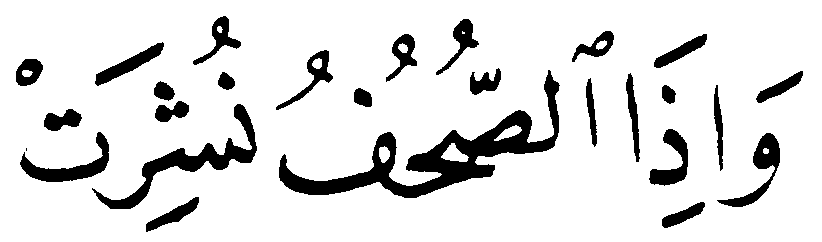 وَاِذَا ٱلصُّحُفُ نُشِرَتْ